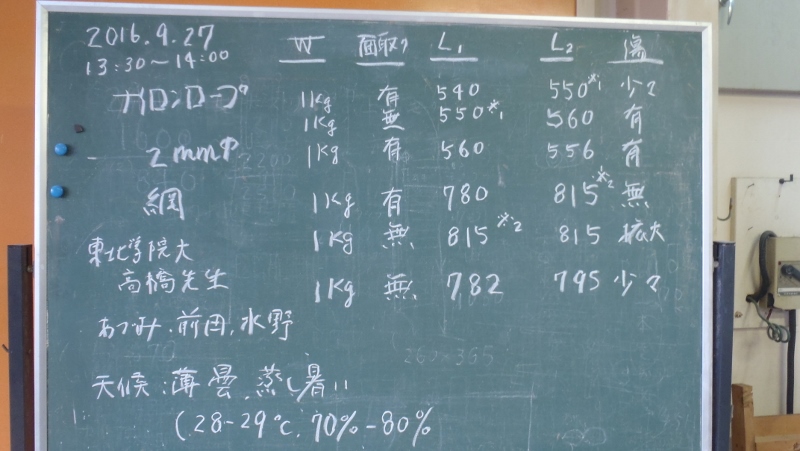 2016.9.27 W 面取り L₁ L₂ 傷
13:30~14:00
ナイロンロープ 1Kg 有 540 550※1 少々
1Kg 無 550※1 560 有
2mmφ 1Kg 有 560 556 有
網 1Kg 有 780 815※2 無
1Kg 無 815※2 815 拡大
東北学院大
高橋先生 1Kg 無 782 795 少々
あつみ、前田、水野
260×365
天候:薄曇、蒸し暑い
(28-29℃、70%-80%